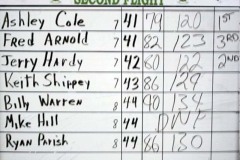 SECOND FLIGHT
Ashley Cole 7 41 79 120 1ST
Fred Arnold 7 41 82 123 3RD
Jerry Hardy 7 42 80 122 2ND
Keith Shippey 7 43 86 129
Billy Warren 8 44 90 134
Mike Hill 8 44 DNF
Ryan Parish 8 44 86 130